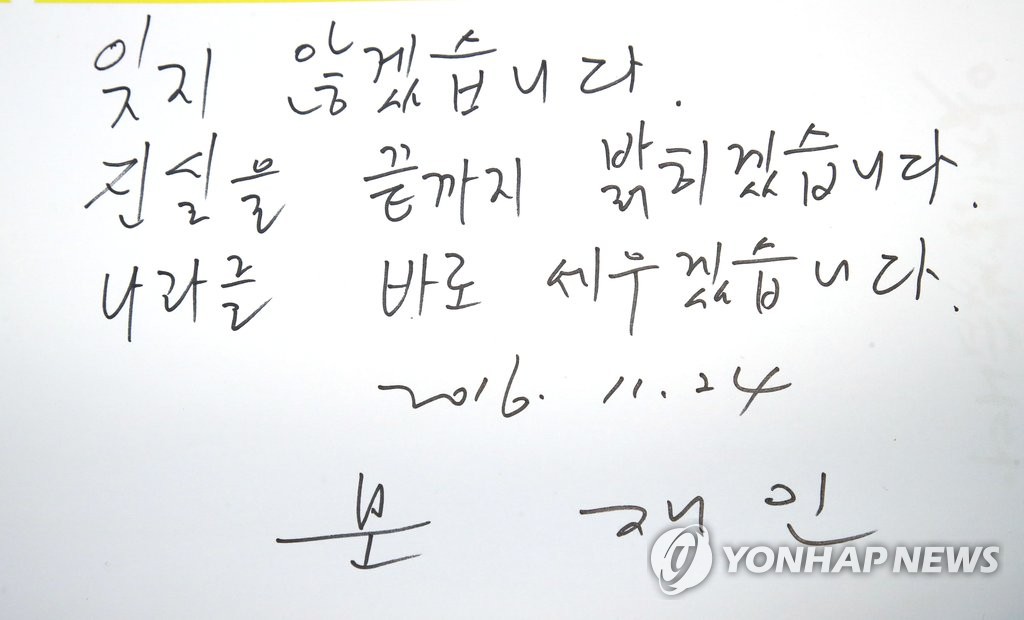 잊지 않겠습니다.
진실을 끝까지 밝히겠습니다.
나라를 바로 세우겠습니다.
2016. 11. 24
문 재인
YONHAP NEWS